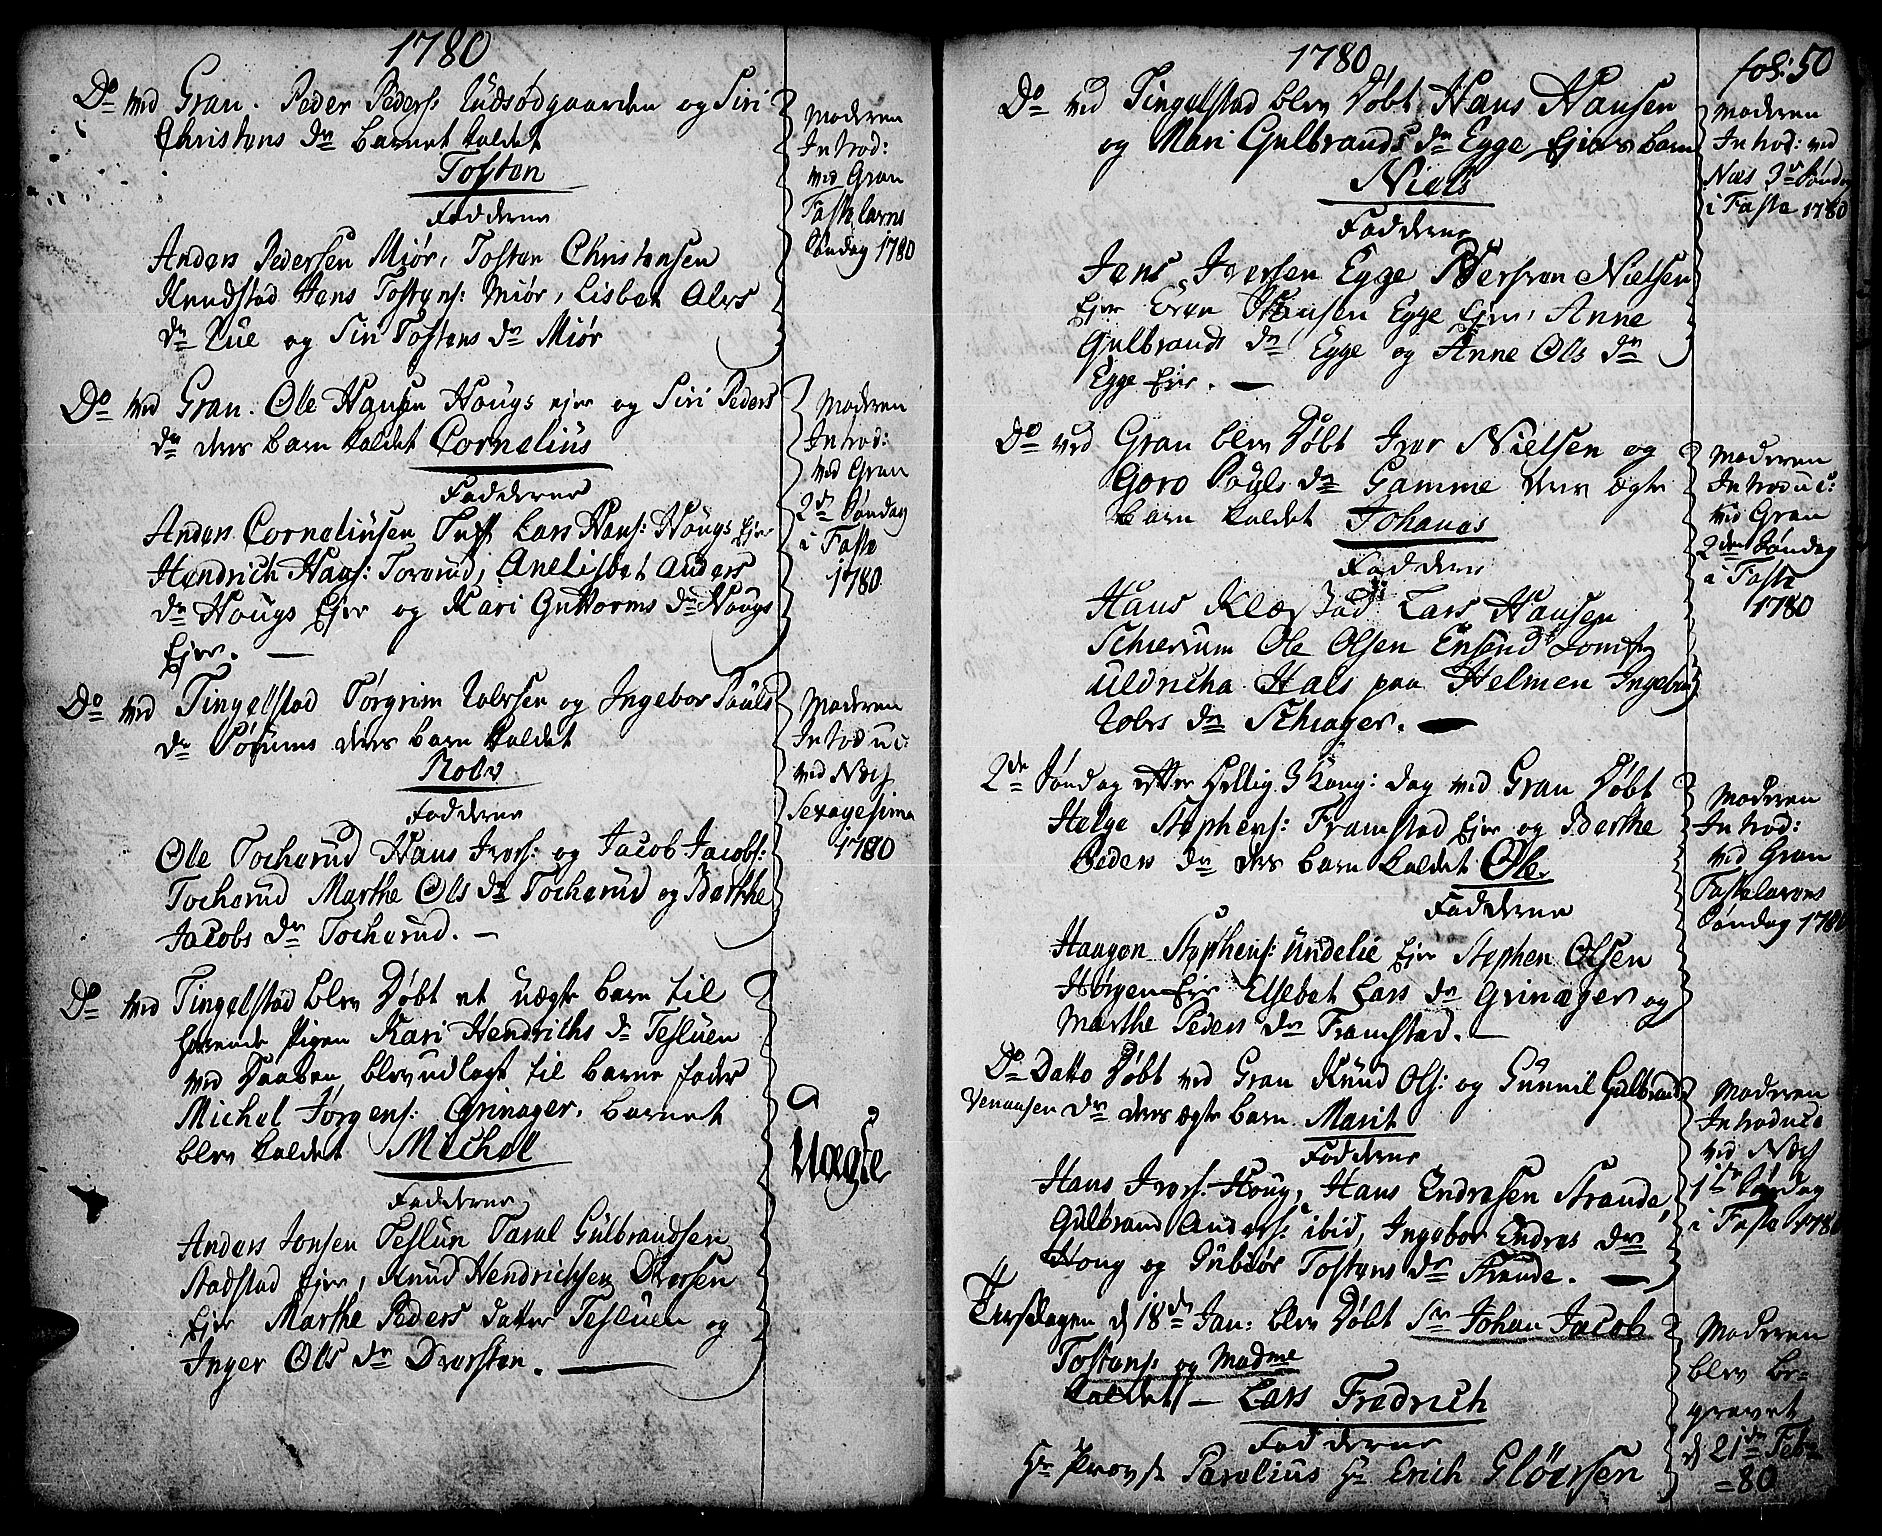 1780
Do ved Gran. Peder Peders: Ludsødgaarden og Siri
Christens dr barnet kaldet
Tosten
Fadderne
Anders Pedersen Miør, Tosten Christensen
Knudstad Jens Tostens: Miør, Lisbet Alvs
dr Lue og Siri Tostens dr Miør
Moderen
Introd:
ved Gran
Fastelavns
Søndag 1780
Do ved Gran. Ole Hansen Hougs ejer og Siri Peders
dr deres barn kaldet Cornelius
Fadderne
Anders Corneliusen Tuft Lars Hans: Hougs Ejer
Hendrich Hans: Torerud, Anelisbet Anders
dr Hougs Ejer og Kari Guttorms dr Hougs
Ejer.
Moderen
Introd:
ved Gran
2den Søndag
i Faste
1780
Do ved Tingelstad Torgrim Rolvsen og Ingebor Pauls
dr Sørums deres barn kaldet
Rolv
Fadderne
Ole Tocherud Hans Ivers: og Jacob Jacobs:
Tocherud Marthe Ols dr Tocherud og Berthe
Jacobs dr Tocherud.
Moderen
Introduc:
ved Næs
Sexagesima
1780
Do ved Tingelstad blev døbt et uægte barn til
hørende Pigen Kari Hendrichs dr Tesluen
ved Daaben blev udlagt til barne fader
Michel Jørgens: Grinager. barnet
blev kaldet Michel
Fadderne
Anders Jonsen Teslun Taral Gulbrandsen
stadstad Ejer, Knud Hendrichsen Dversen
Ejer Marthe Peders datter Tesluen og
Inger Ols dr Dversten.
Uægte
1780
fol: 50
Do ved Tingelstad blev døbt Hans Hansen
og Mari Gulbrands dr Egge Ejers barn
Niels
Fadderne
Jens Iversen Egge Iversven Nielsen
Ejer Even Hansen Egge Ejer, Anne
Gulbrands dr Egge og Anne Ols dr
Egge Ejer.
Moderen
Introd: ved
Næs 3de Søndag
i Faste 1780
Do ved Gran blev døbt Iver Nielsen og
Goro Pouls dr Gamme deres ægte
barn kaldet Johanes
Fadderne
Hans Klæstad Lars Hansen
Schierrum Ole Olsen Ensend Jomfr
Uldricha Hals paa Helmen Ingebor
Rolvs dr Schiager.
Moderen
Introduc:
ved Gran
2den Søndag
i Faste
1780
2de Søndag efter Hellig 3 Kong: dag ved Gran døbt
Helge Stephens: Framstad Ejer og Berthe
Peders dr deres barn kaldet Ole
Fadderne
Haagen Stephens: Undelie Ejer Stephen Olsen
Hørgen Ejer Elsebet Lars dr Grinager og
Marthe Peders dr Framstad.
Moderen
Introd:
ved Gran
Fastelavens
Søndag 1780
Do Dato døbt ved Gran Knud Ols: og Gunnil Gulbrands
Venaasen dr deres ægte barn Marit
Fadderne
Hans Ivers: Houg, Hans Endresen Strande,
Gulbrand Anders: ibid, Ingebor Endres dr
Houg og Gubiør Tostens dr Strande.
Moderen
Introduce
ved Næs
1ste Søndag
i Faste 1780
Tirsdagen d 18de Jan: blev døbt Sr Johan Jacob
Tostens: og Madme
kaldet Lars Fredrich
Fadderne
Hr Provst Parelius Hr Erich Glöersen
Moderen
blev be=
gravet
d 21de Feb
=80